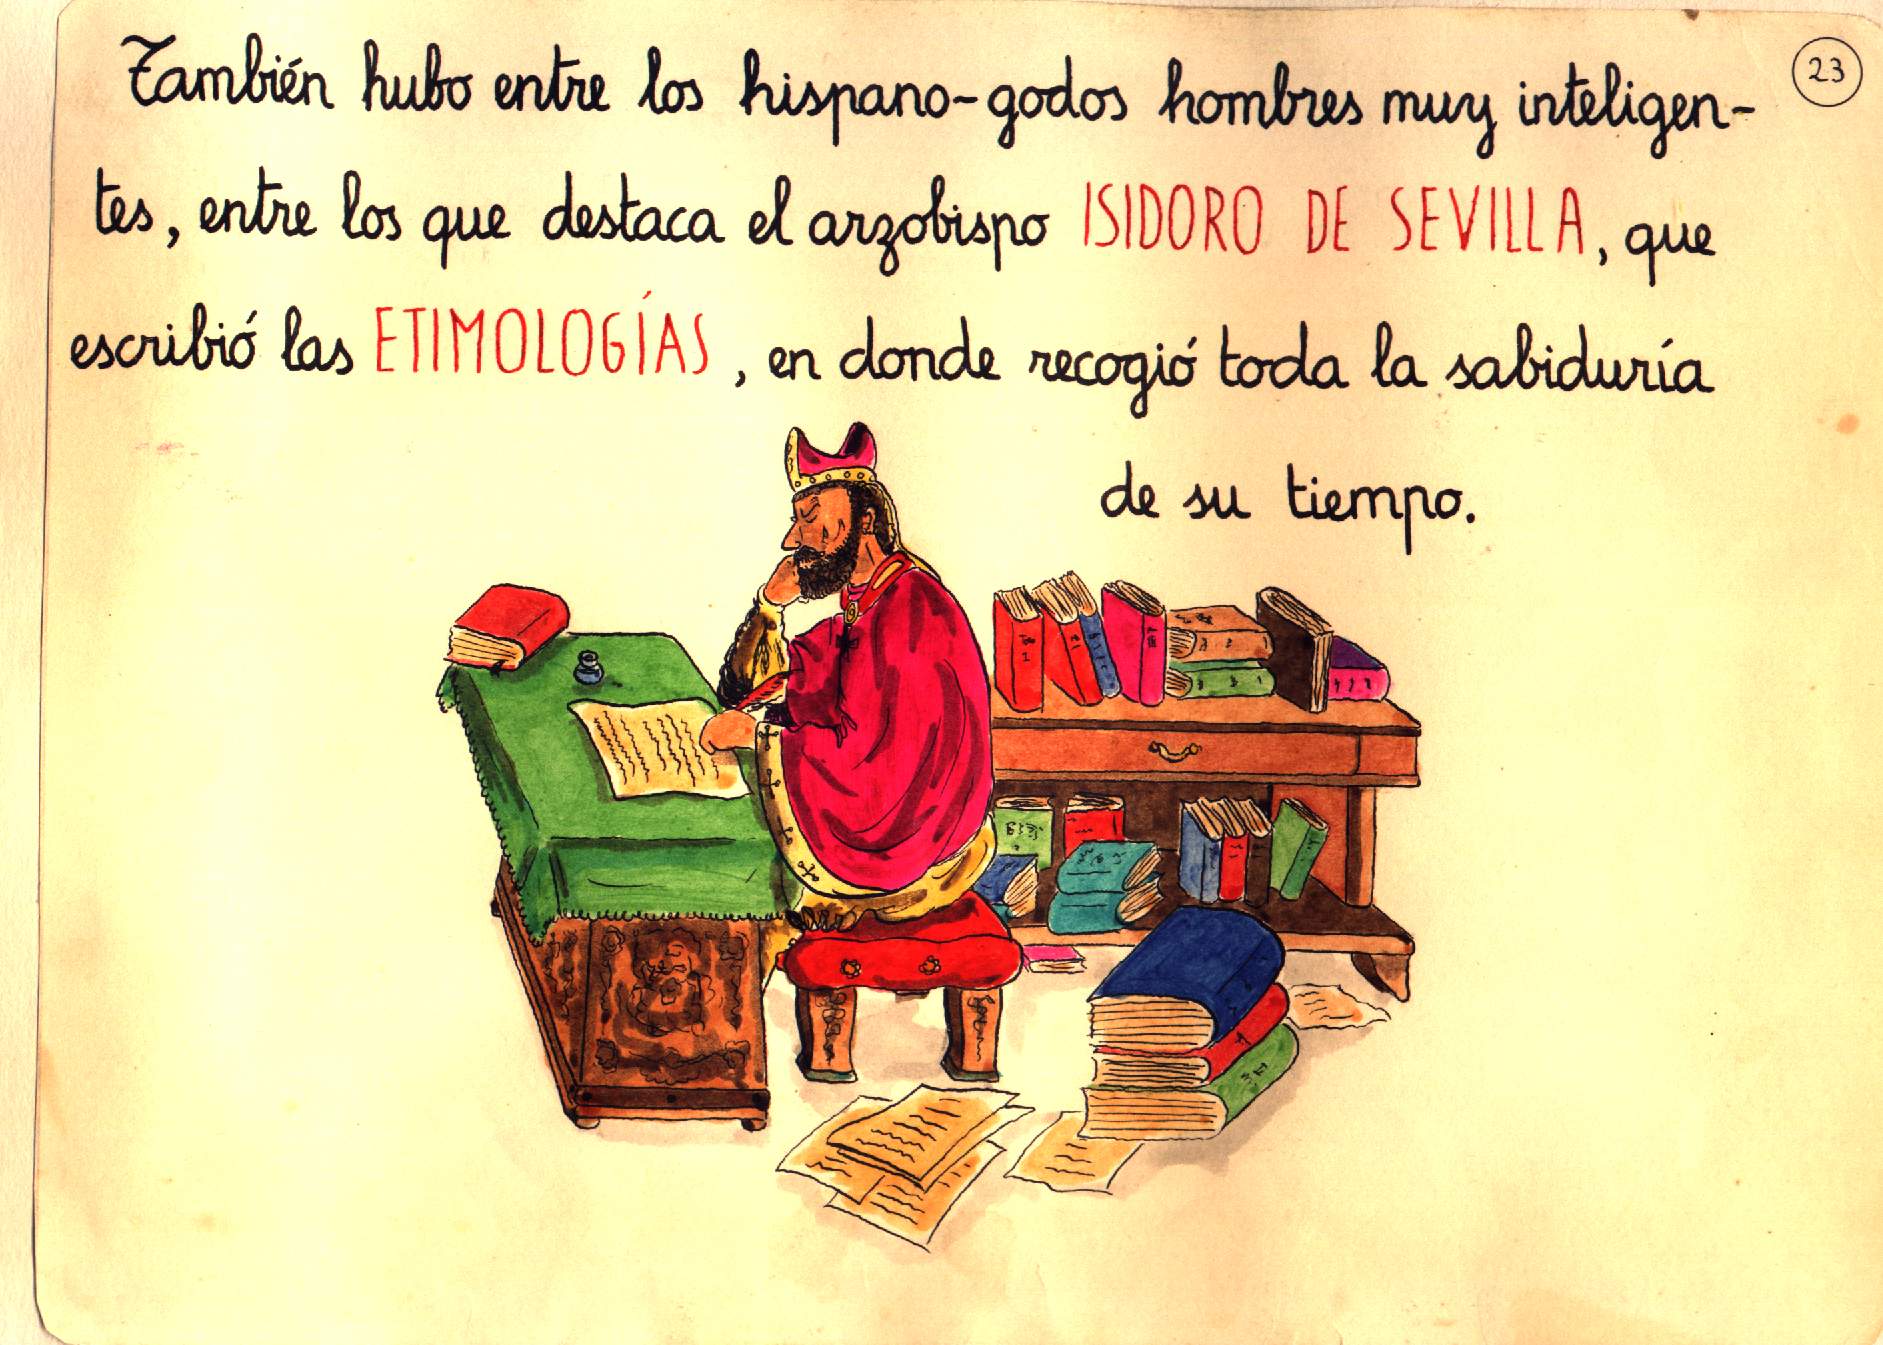 23
También hubo entre los hispano-godos hombres muy inteligen-
tes, entre los que destaca el arzobispo ISIDORO DE SEVILLA, que
escribió las ETIMOLOGÍAS, en donde recogió toda la sabiduría
de su tiempo.